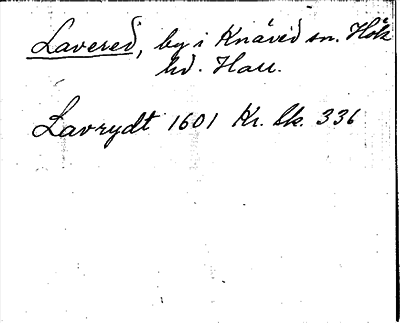 Lavered, by i Knäred sn. Hök
hd. Hall.
Lavrydt 1601 Kr. Sk. 336